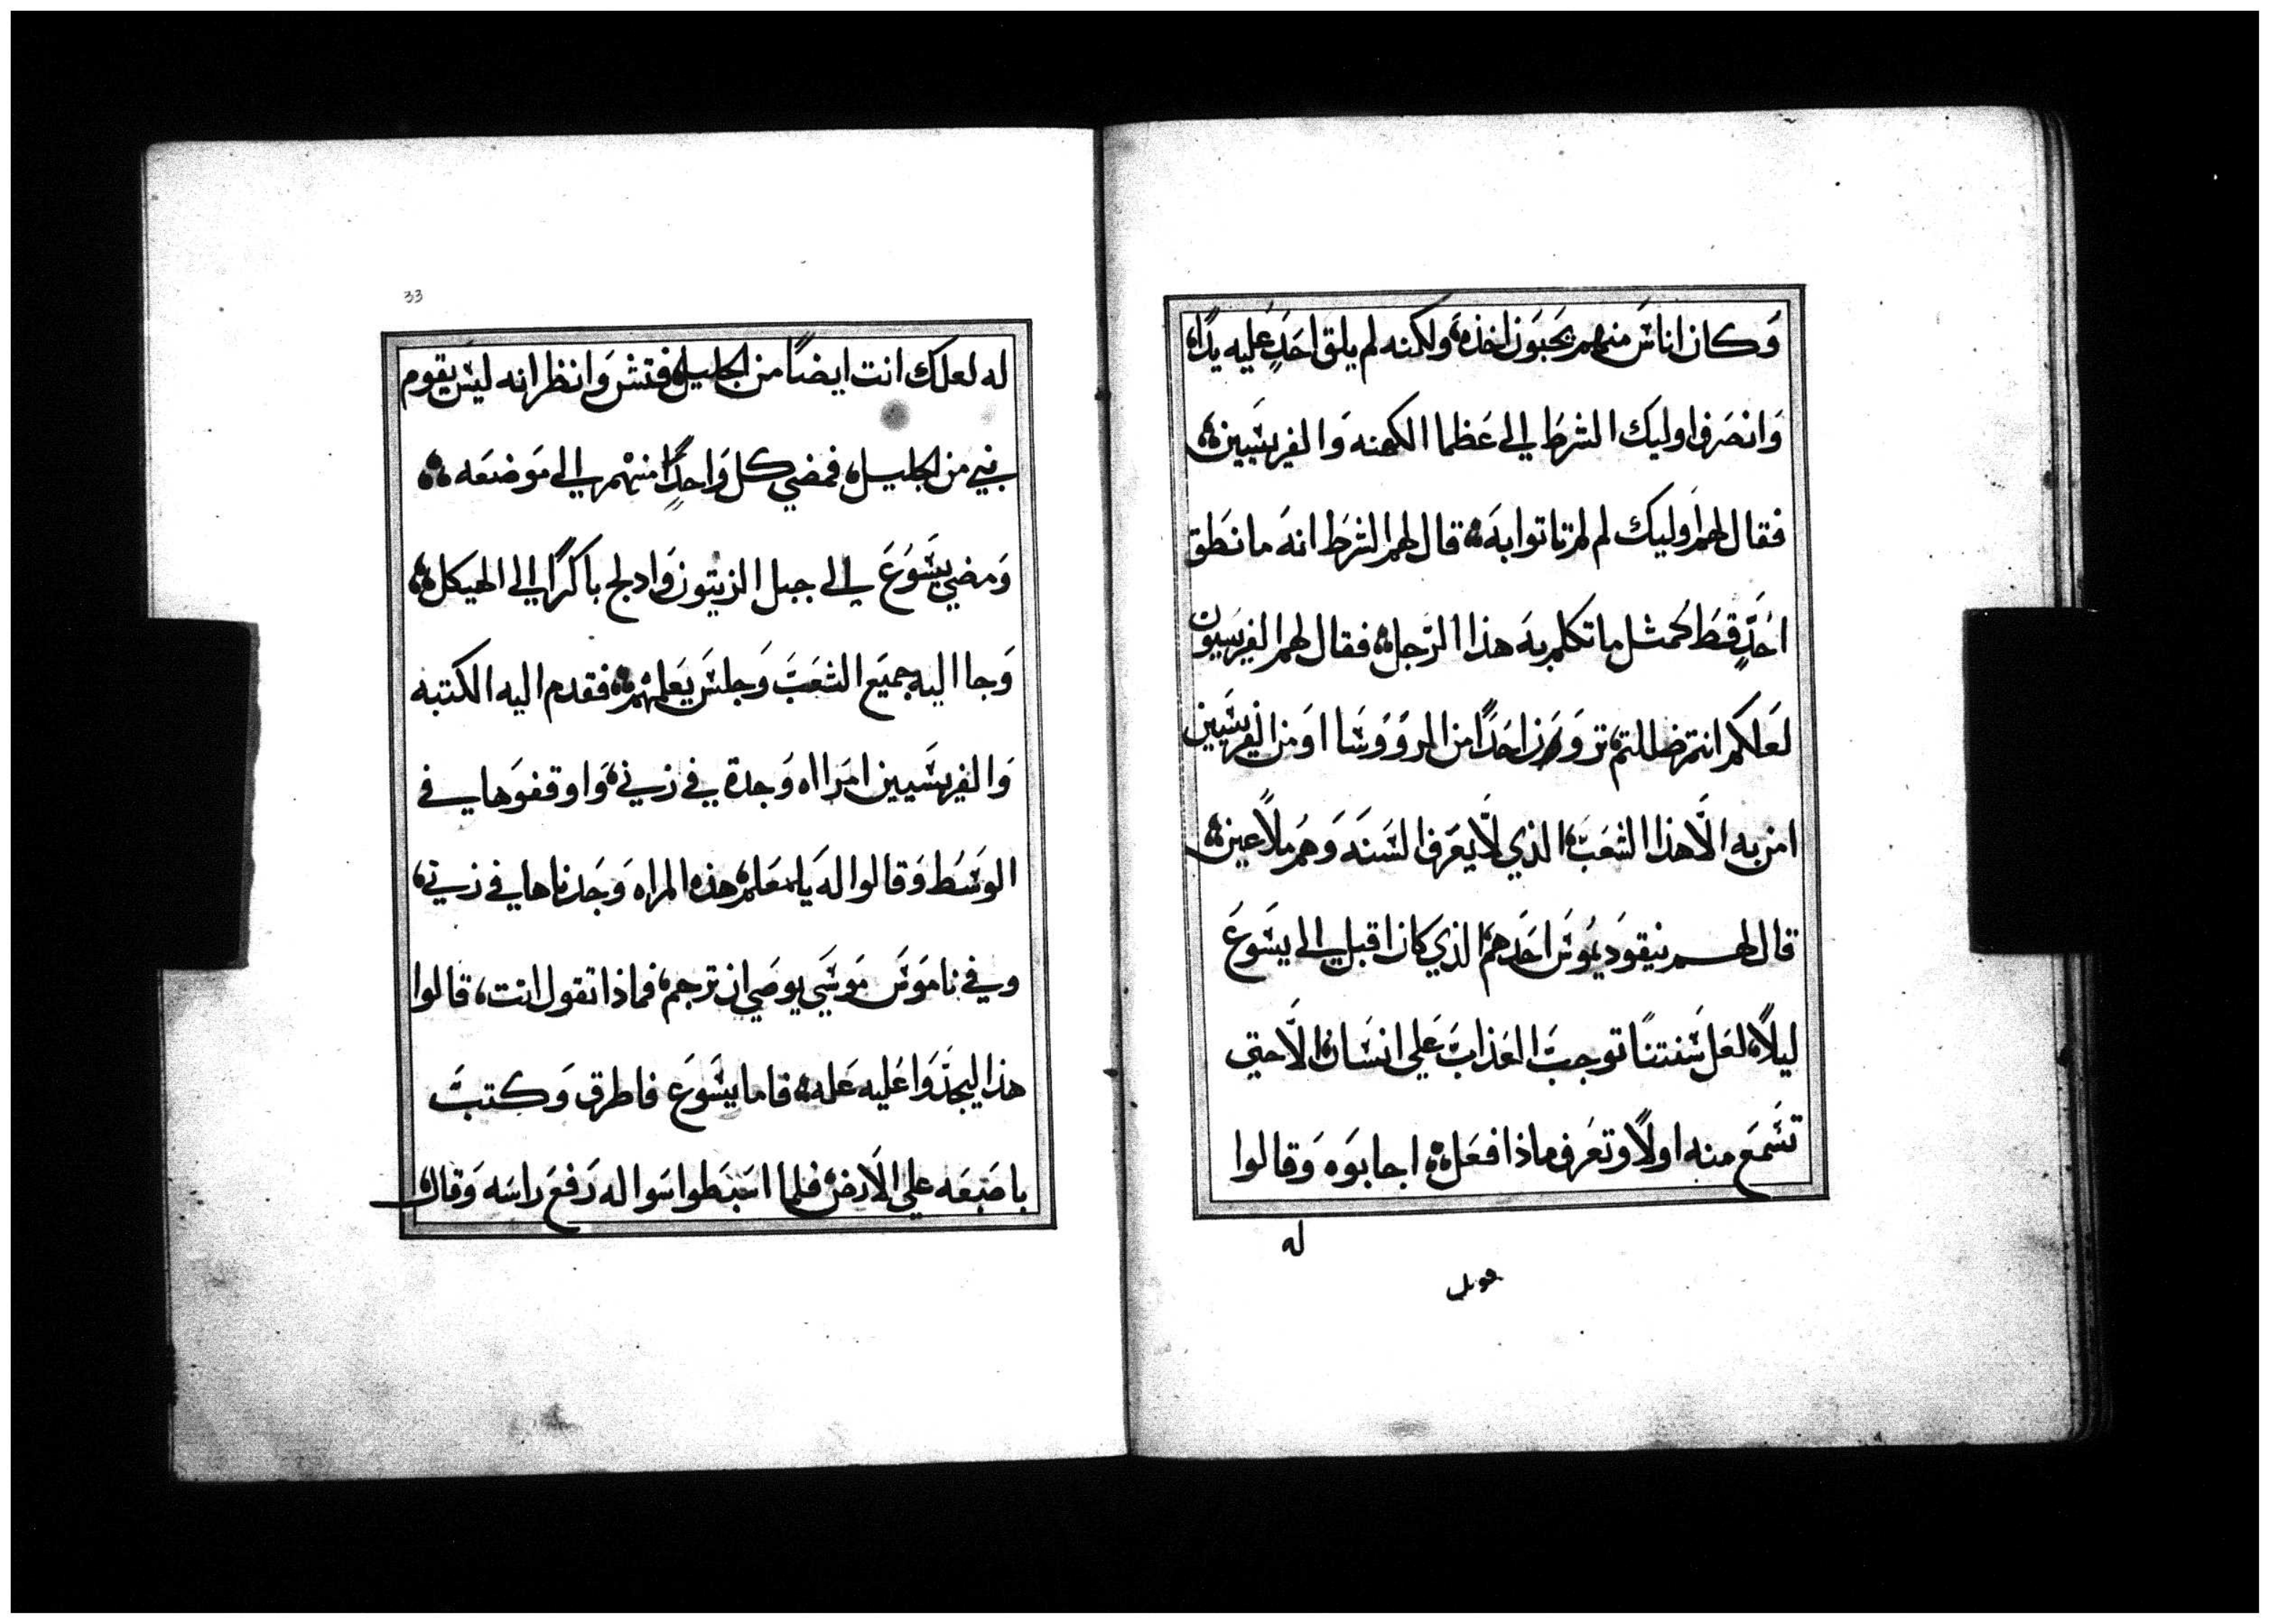 وَكان اناسَ منهم يحَبوَن اخذهَ، ولكنه لم يلق احَدٍ عَليه يدًا،
وَانصَرف اوليك الشرطَ الي عَظما الكهنه وَالفريسَيين
فقال لهم اوليك لم لم تاتوا بهَ قال لهم الشرَط انهَ ما نطَق
احَدٍ قطَ كمثل ما تكلم بهَ هذا الرَجل فقال لهم الفريسَيون
لعَلكم انتم ضللتم، ترَوَن احَدًا من الروَوسَا اوَ من الفريسَيين
امن به الَا هذا الشعَبَ، الذي لَا يعَرف السَنهَ وَهم ملَاعين
قال لهم نيقودَيموُسَ احَدهم، الذي كان اقبل الي يسَوعَ
ليلًا، لعَل سَنتنا توجبَ العَذابَ عَلي انسَان، الَا حتي
تسَمعَ منه اولًا وتعَرف ماذا فعَل اجابوَه وَقالوا
له
له لعلك انت ايضًا من الجليل، فتش وَانظر انه ليسَ يقوم
نبي من الجليل، فمضي كل وَاحدًا منهم الي موَضعَه
وَمضي يسَوُعَ الي جبل الزيتون وَادلج باكرًا الي الهيكل
وَجا اليه جميعَ الشعَبَ وَجلسَ يعَلمهم فقدم اليه الكتبه
وَالفريسَيين امرَااه وَجدة في زني، وَاوقفوَها في
الوسَط وَقالوا لهَ يا معَلم، هذه المراه وَجدناها في زني،
وفي ناموَسَ موَسَي يوصَي ان ترجم، فماذا تقول انت، قالوا
هذا ليجدَوَا عَليه عَله فاما يسَوَعَ فاطرق وَكتبَ
باصَبعَه علي الَارض، فلما اسَبطوا سَواله رَفعَ راسَه وَقال